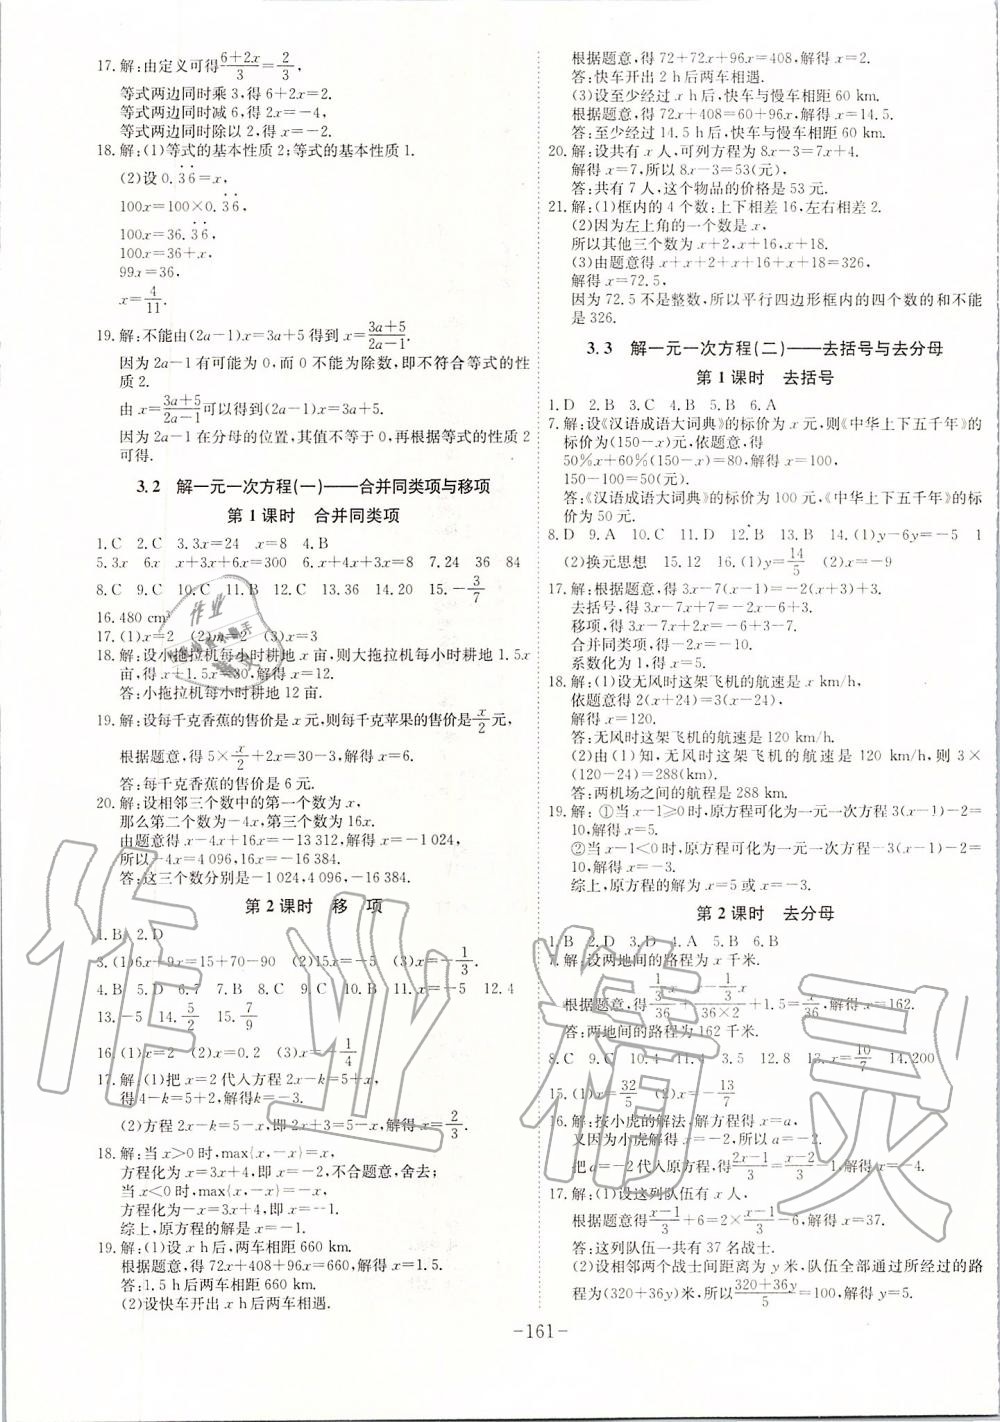 17. 解:由定义可得(6+2x)/3=2/3,
等式两边同时乘 3,得 6+2x=2,
等式两边同时减 6,得 2x=-4,
等式两边同时除以 2,得 x=-2.
18. 解:(1)等式的基本性质 2;等式的基本性质 1.
(2)设 0.3̇6̇=x,
100x=100×0.3̇6̇,
100x=36.3̇6̇,
100x=36+x,
99x=36,
x=4/11.
19. 解:不能由(2a-1)x=3a+5 得到 x=(3a+5)/(2a-1).
因为 2a-1 有可能为 0,而 0 不能为除数,即不符合等式的性
质 2.
由 x=(3a+5)/(2a-1)可以得到(2a-1)x=3a+5.
因为 2a-1 在分母的位置,其值不等于 0,再根据等式的性质 2
可得.
3.2 解一元一次方程(一)——合并同类项与移项
第 1 课时 合并同类项
1. C 2. C 3. 3x=24 x=8 4. B
5. 3x 6x x+3x+6x=300 6. x+4x+3x=8 7. 24 36 84
8. C 9. C 10. C 11. B 12. C 13. 36 14. 20 15. -3/7
16. 480 cm²
17. (1)x=2 (2)m=2 (3)x=3
18. 解:设小拖拉机每小时耕地 x 亩,则大拖拉机每小时耕地 1.5x
亩,得 x+1.5x=30,解得 x=12.
答:小拖拉机每小时耕地 12 亩.
19. 解:设每千克香蕉的售价是 x 元,则每千克苹果的售价是x/2元,
根据题意,得 5×x/2+2x=30-3,解得 x=6.
答:每千克香蕉的售价是 6 元.
20. 解:设相邻三个数中的第一个数为 x,
那么第二个数为-4x,第三个数为 16x.
由题意得 x-4x+16x=-13 312,解得 x=-1 024,
所以-4x=4 096,16x=-16 384.
答:这三个数分别是-1 024,4 096,-16 384.
第 2 课时 移 项
1. B 2. D
3. (1)6x+9x=15+70-90 (2)15x=-5 (3)x=-1/3.
4. B 5. D 6. 7 7. D 8. C 9. C 10. B 11. x=-5 12. 4
13. -5 14. 5/2 15. 7/9
16. (1)x=2 (2)x=0.2 (3)x=-1/4
17. 解:(1)把 x=2 代入方程 2x-k=5+x,
得 4-k=5+2,解得k=-3.
(2)方程 2x-k=5-x,即 2x+3=5-x,解得 x=2/3.
18. 解:当 x>0 时,max{x,-x}=x,
方程化为 x=3x+4,即 x=-2,不合题意,舍去;
当 x<0 时,max{x,-x}=-x,
方程化为-x=3x+4,即 x=-1.
综上,原方程的解是 x=-1.
19. 解:(1)设 x h 后,两车相距 660 km.
根据题意,得 72x+408+96x=660,解得 x=1.5.
答:1.5 h 后两车相距 660 km.
(2)设快车开出 x h 后两车相遇.
根据题意,得 72+72x+96x=408,解得 x=2.
答:快车开出 2 h 后两车相遇.
(3)设至少经过 x h 后,快车与慢车相距 60 km.
根据题意,得 72x+408=60+96x,解得 x=14.5.
答:至少经过 14.5 h 后,快车与慢车相距 60 km.
20. 解:设共有 x 人,可列方程为 8x-3=7x+4.
解得 x=7,所以 8x-3=53(元),
答:共有 7 人,这个物品的价格是 53 元.
21. 解:(1)框内的 4 个数:上下相差 16,左右相差 2.
(2)因为左上角的一个数是 x,
所以其他三个数为 x+2,x+16,x+18.
(3)由题意得 x+x+2+x+16+x+18=326,
解得 x=72.5,
因为 72.5 不是整数,所以平行四边形框内的四个数的和不能
是 326.
3.3 解一元一次方程(二)——去括号与去分母
第 1 课时 去括号
1. D 2. B 3. C 4. B 5. B 6. A
7. 解:设《汉语成语大词典》的标价为 x 元,则《中华上下五千年》的
标价为(150-x)元,依题意,得
50%x+60%(150-x)=80,解得 x=100,
150-100=50(元).
答:《汉语成语大词典》的标价为 100 元,《中华上下五千年》的
标价为 50 元.
8. D 9. A 10. C 11. D 12. B 13. B 14. (1)y-6y=-5 1
(2)换元思想 15. 12 16. (1)y=14/5 (2)x=-9
17. 解:根据题意,得 3x-7(x-1)-2(x+3)+3,
去括号,得 3x-7x+7=-2x-6+3,
移项,得 3x-7x+2x=-6+3-7,
合并同类项,得-2x=-10,
系数化为 1,得 x=5.
18. 解:(1)设无风时这架飞机的航速是 x km/h,
依题意得 2(x+24)=3(x-24),
解得 x=120.
答:无风时这架飞机的航速是 120 km/h.
(2)由(1)知,无风时这架飞机的航速是 120 km/h,则 3×
(120-24)=288(km).
答:两机场之间的航程是 288 km.
19. 解:①当 x-1≥0 时,原方程可化为一元一次方程 3(x-1)-2=
10,解得 x=5.
②当 x-1<0 时,原方程可化为一元一次方程-3(x-1)-2=
10,解得 x=-3.
综上,原方程的解为 x=5 或 x=-3.
第 2 课时 去分母
1. B 2. D 3. D 4. A 5. B 6. B
7. 解:设两地间的路程为 x 千米.
根据题意,得(1/3x)/36+(x-1/3x)/(36×2)+1.5=x/36,解得 x=162.
答:两地间的路程为 162 千米.
8. C 9. C 10. 4 11. 4 3.5 12. 8 13. x=10/7 14. 200
15. (1)x=32/5 (2)x=-13/7
16. 解:按小虎的解法,解方程得 x=a,
又因为小虎解得 x=-2,所以 a=-2.
把 a=-2 代入原方程,得(2x-1)/3=(x-2)/3-1,解得 x=-4.
17. 解:(1)设这列队伍有 x 人,
根据题意得(x-1)/3+6=2×(x-1)/3-6,解得 x=37.
答:这列队伍一共有 37 名战士.
(2)设相邻两个战士间距离为 y 米,队伍全部通过所经过的路
程为(320+36y)米,所以(320+36y)/5=100,解得 y=5.
-161-
作业精灵